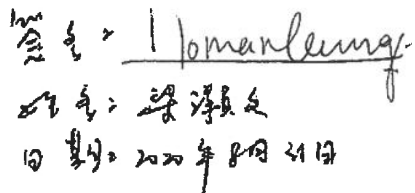 簽名: Homan Leung
姓名: 梁灝文
日期: 2020年8月31日